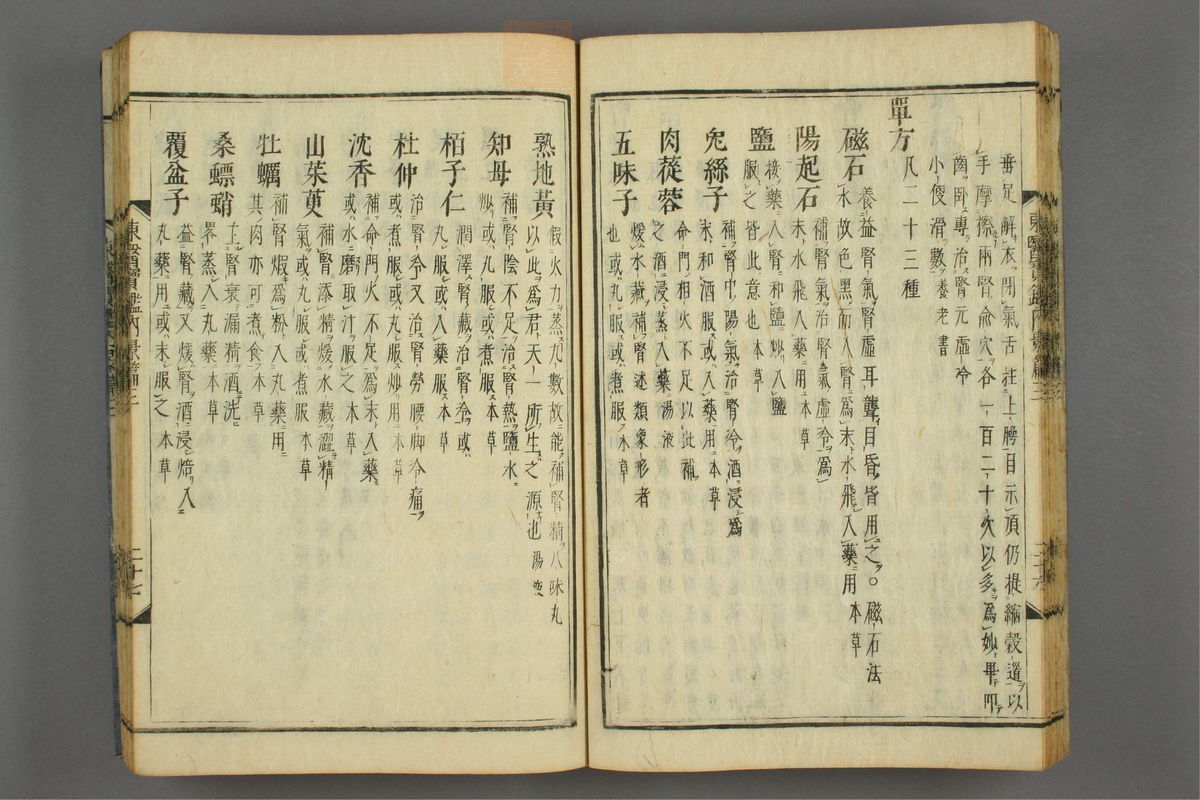 垂足解衣閉氣舌拄上腭目示頂仍提縮穀道以
手摩擦兩腎俞穴各一百二十次以多爲妙畢卽
臥專治腎元虛冷
小便滑數養老書
單方
凡二十三種
磁石
養益腎氣腎虛耳聾目昏皆用之○磁石法
水故色黑而入腎爲末水飛入藥用本草
陽起石
補腎氣治腎氣虛冷爲
末水飛入藥用本草
鹽
接藥入腎和鹽炒入鹽
服之皆此意也本草
兔絲子
補腎中陽氣治腎冷酒浸爲
末和酒服或入藥用本草
肉蓯蓉
命門相火不足以此補
之酒浸蒸入藥湯液
五味子
煖水藏補腎述類象形者
也或丸服或煮服本草
東醫寶鑑內景篇三
熟地黃
假火力蒸九數故能補腎精八味丸
以此爲君天一所生之源也湯液
知母
補腎陰不足治腎熱鹽水
炒或丸服或煮服本草
栢子仁
潤澤腎藏治腎冷或
丸服或入藥服本草
杜仲
治腎冷又治腎勞腰脚冷痛
或煮服或丸服炒用本草
沈香
補命門火不足爲末入藥
或水磨取汁服之本草
山茱萸
補腎添精煖水藏澀精
氣或丸服或煮服本草
牡蠣
補腎煆爲粉入丸藥用
其肉亦可煮食本草
桑螵蛸
主腎衰漏精酒洗
畧蒸入丸藥本草
覆盆子
益腎藏又煖腎酒浸焙入
丸藥用或末服之本草
東醫寶鑑內景篇三
二十七